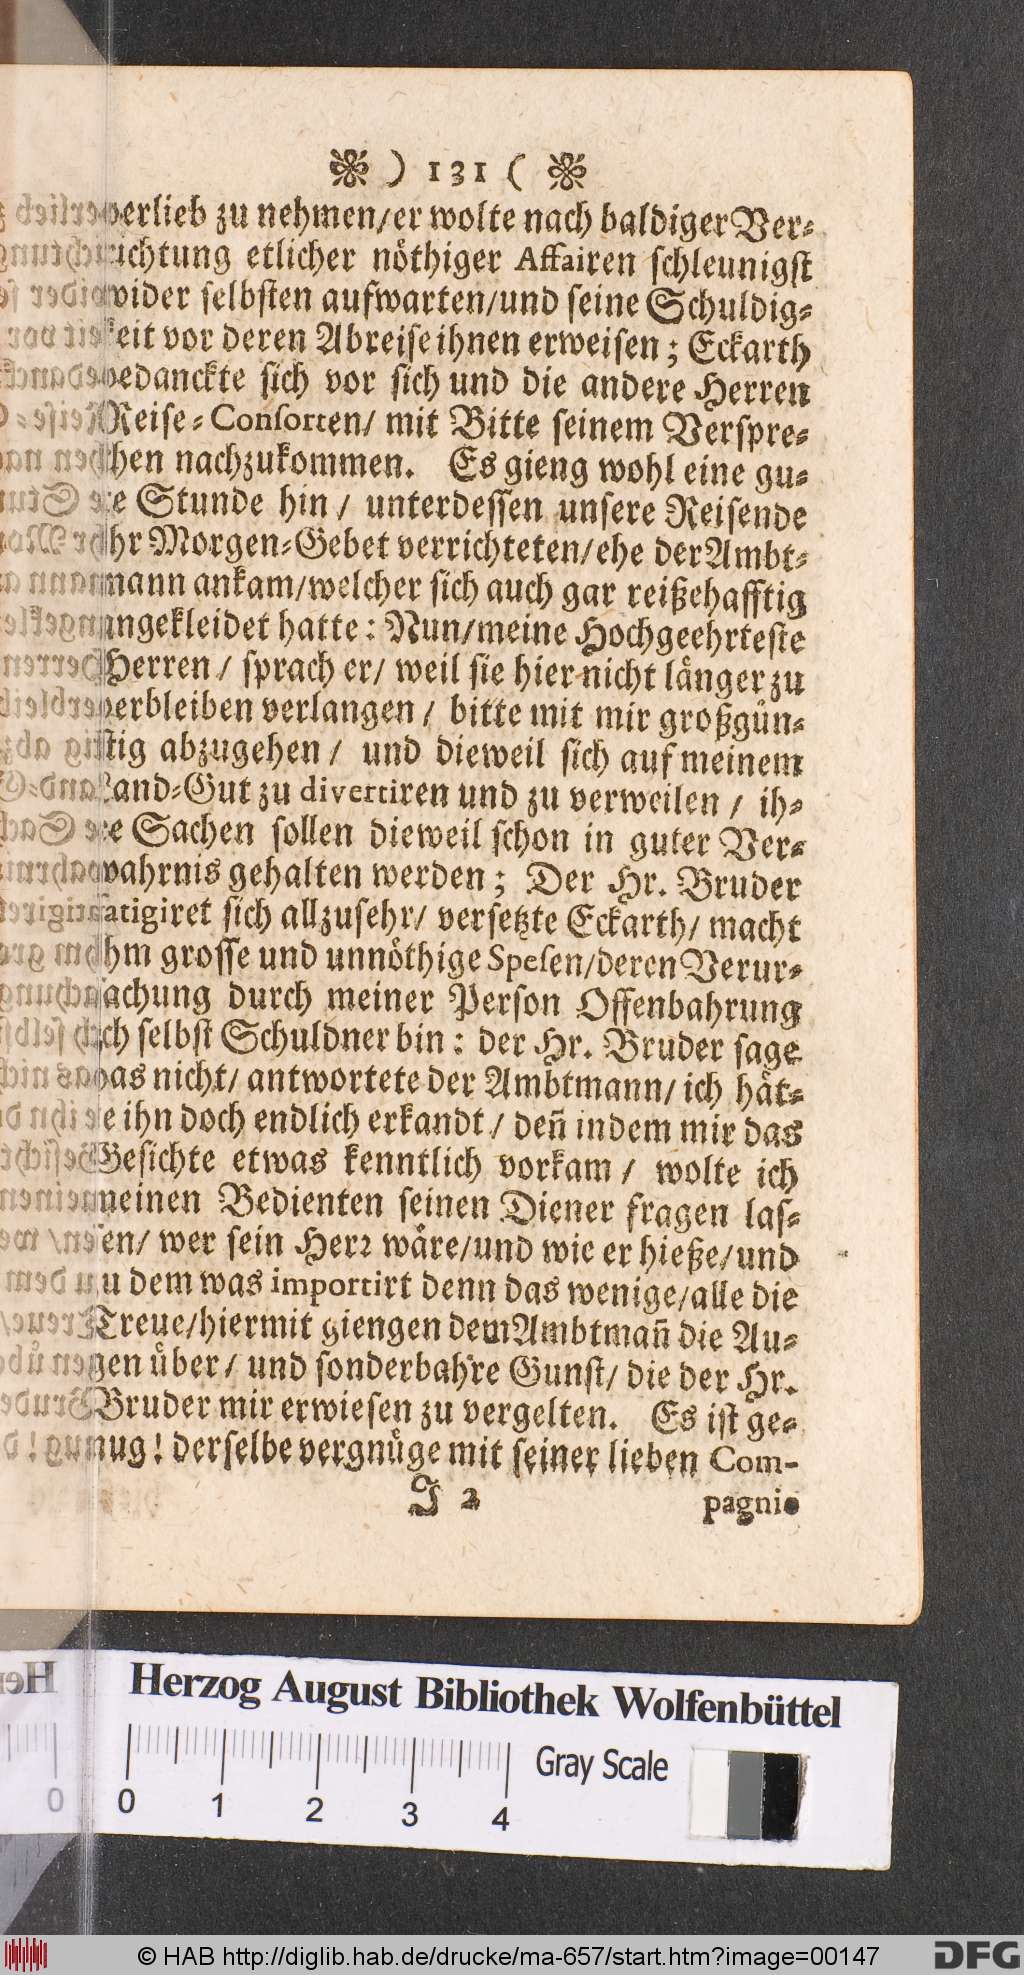 ❃ ) 131 ( ❃
verlieb zu nehmen/er wolte nach baldiger Ver-
richtung etlicher nöthiger Affairen schleunigst
wider selbsten aufwarten/und seine Schuldig-
keit vor deren Abreise ihnen erweisen; Eckarth
bedanckte sich vor sich und die andere Herren
Reise-Consorten/ mit Bitte seinem Verspre-
chen nachzukommen. Es gieng wohl eine gu-
te Stunde hin / unterdessen unsere Reisende
ihr Morgen-Gebet verrichteten/ehe der Ambt-
mann ankam/welcher sich auch gar reißehafftig
angekleidet hatte: Nun/meine Hochgeehrteste
Herren/ sprach er/ weil sie hier nicht länger zu
verbleiben verlangen / bitte mit mir großgün-
stig abzugehen / und dieweil sich auf meinem
Land-Gut zu divertiren und zu verweilen / ih-
re Sachen sollen dieweil schon in guter Ver-
wahrnis gehalten werden; Der Hr. Bruder
fatigiret sich allzusehr/ versetzte Eckarth/ macht
ihm grosse und unnöthige Spesen/deren Verur-
sachung durch meiner Person Offenbahrung
ich selbst Schuldner bin: der Hr. Bruder sage
das nicht/ antwortete der Ambtmann/ ich hät-
te ihn doch endlich erkandt / den̄ indem mir das
Gesichte etwas kenntlich vorkam / wolte ich
meinen Bedienten seinen Diener fragen las-
sen/ wer sein Herr wäre/und wie er hieße/und
zu dem was importirt denn das wenige/alle die
Treue/hiermit giengen dem Ambtman̄ die Au-
gen über/ und sonderbahre Gunst/ die der Hr.
Bruder mir erwiesen zu vergelten. Es ist ge-
nug! derselbe vergnüge mit seiner lieben Com-
J 2 pagnie
Herzog August Bibliothek Wolfenbüttel
Gray Scale
0 1 2 3 4
© HAB http://diglib.hab.de/drucke/ma-657/start.htm?image=00147
DFG